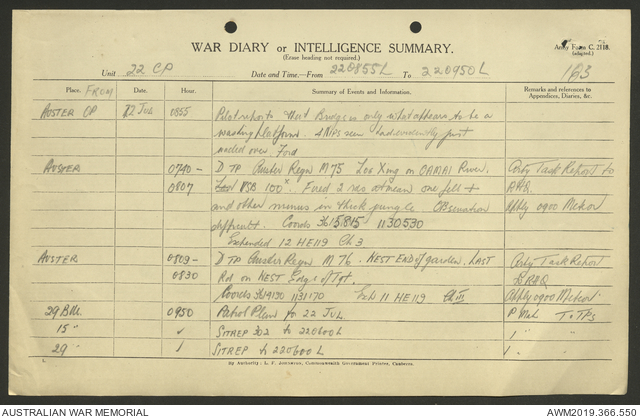 WAR DIARY or INTELLIGENCE SUMMARY.
(Erase heading not required.)
Army Form C. 2118.
(adapted.)
163
Unit 22 CP
Date and Time—From 220855L To 220950L
Place. FROM Date. Hour. Summary of Events and Information. Remarks and references to Appendices, Diaries, &c.
AUSTER OP 22 JUL 0855 Pilot reports that Bridge is only what appears to be a
washing platform. 4 NPs seen had evidently just
waded over. Ford
AUSTER 0740- D TP Auster Regn M75 Log Xing on OAMAI River. Arty Task Report to
0807 VSB 100x. Fired 2 rds at mean one fell + RHQ.
and other minus in thick jungle. Observation Apply 0900 Meteor
difficult. Coords 3615815 1130530
Expended 12 HE119 Ch 3.
AUSTER 0809- D TP Auster Regn M76. WEST END of garden. LAST Arty Task Report
0830 Rd on WEST Edge of Tgt. to RHQ
Coords 3614190 1131170 11 HE119 Ch III Apply 0900 Meteor.
29 Bde. 0950 Patrol Plan to 22 JUL. TPs
15 " SITREP 302 to 220600L "
29 " SITREP to 220600L "
By Authority: L. F. Johnston, Commonwealth Government Printer, Canberra.
AUSTRALIAN WAR MEMORIAL
AWM2019.366.550